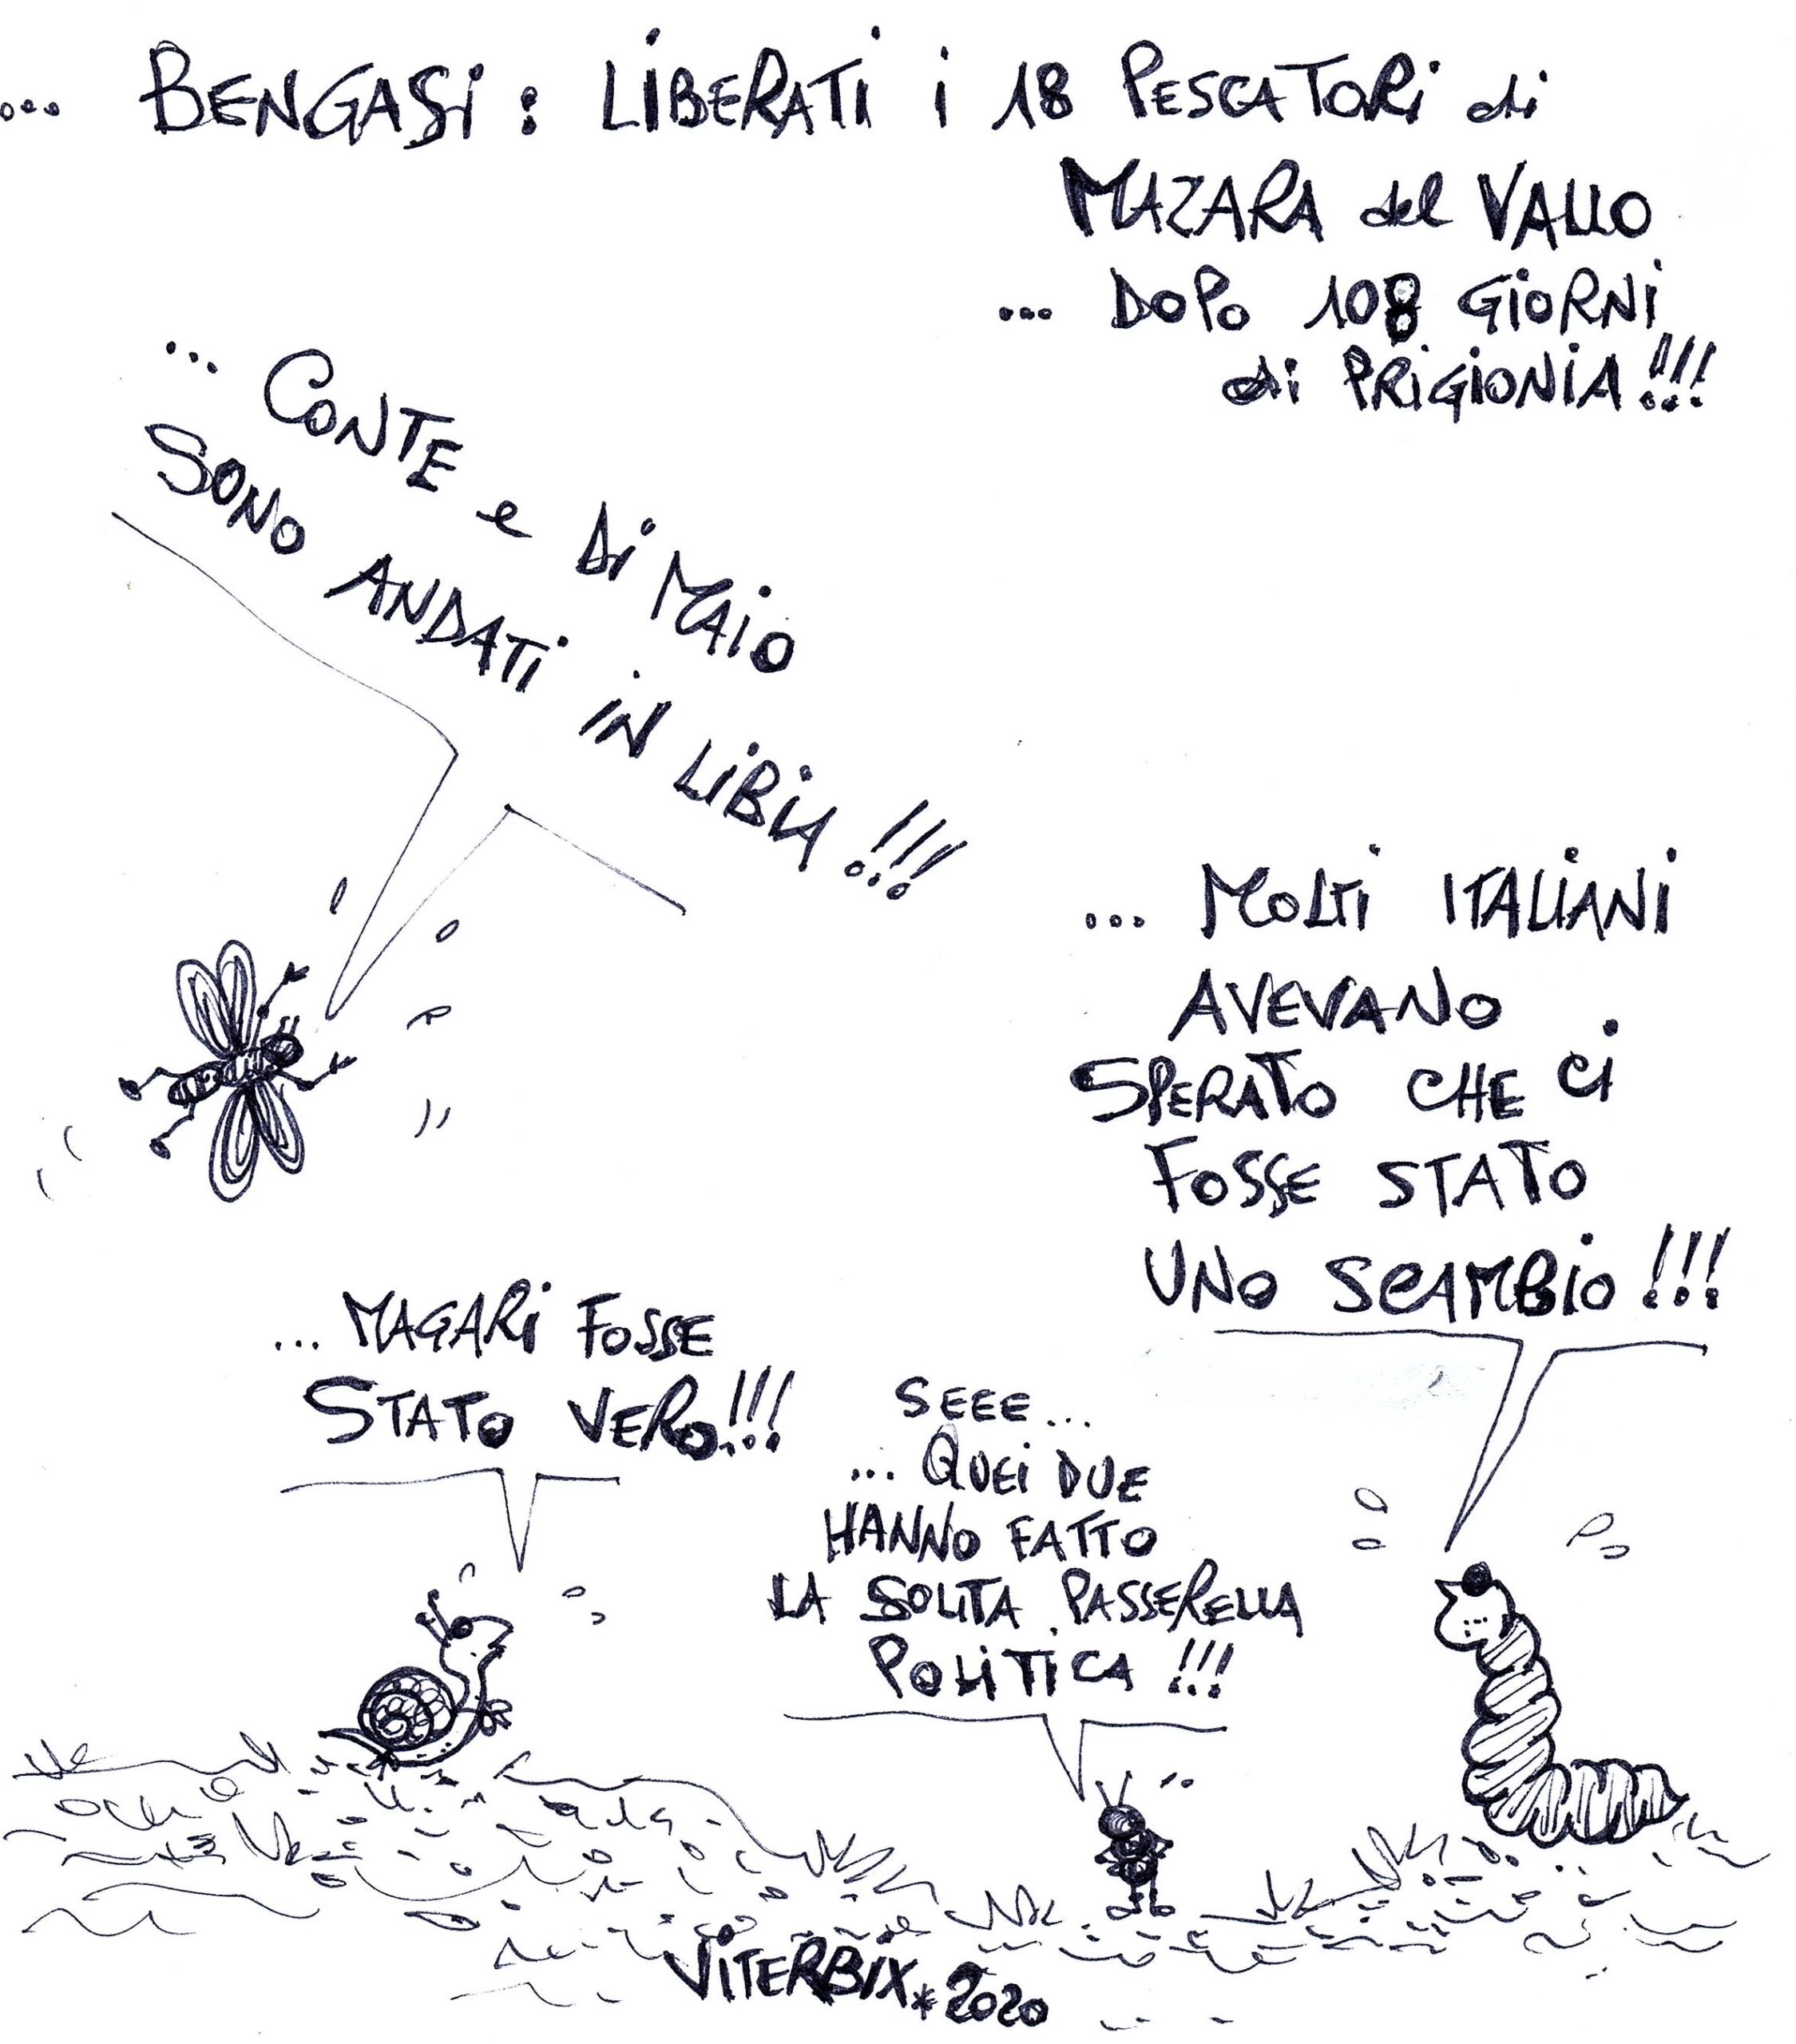 ... BENGASI : LIBERATI I 18 PESCATORI di
MAZARA del VALLO
... DOPO 108 GIORNI
di PRIGIONIA!!!
... CONTE e Di MAIO
SONO ANDATI IN LIBIA!!!
... MOLTI ITALIANI
AVEVANO
SPERATO CHE CI
FOSSE STATO
UNO SCAMBIO!!!
... MAGARI FOSSE
STATO VERO!!!
SEEE...
... QUEI DUE
HANNO FATTO
LA SOLITA PASSERELLA
POLITICA!!!
VITERBIX*2020